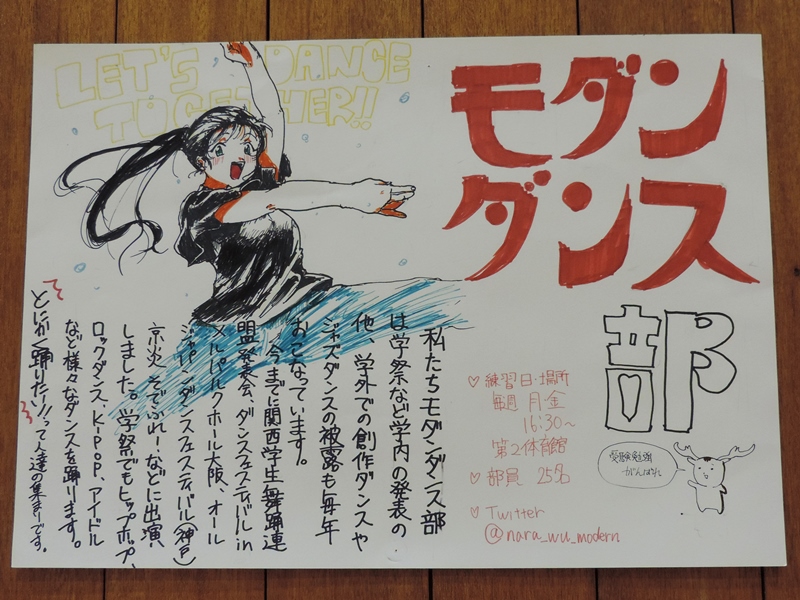 LET'S DANCE
TOGETHER!!
モダン
ダンス
部
私たちモダンダンス部
は学祭など学内の発表の
他、学外での創作ダンスや
ジャズダンスの被露も毎年
おこなっています。
今までに関西学生舞踊連
盟発表会、ダンスフェスティバルin
メルパルクホール大阪、オール
ジャパンダンスフェスティバル(神戸)
京炎そでふれーなどに出演、
しました。学祭でもヒップホップ、
ロックダンス、K-POP、アイドル
など様々なダンスを踊ります。
とにかく踊りたーい!!って人達の集まりです。
♡練習日・場所
毎週 月金
16:30~
第2体育館
♡部員 25名
♡Twitter
@nara_wu_modern
受験勉強
がんばれ